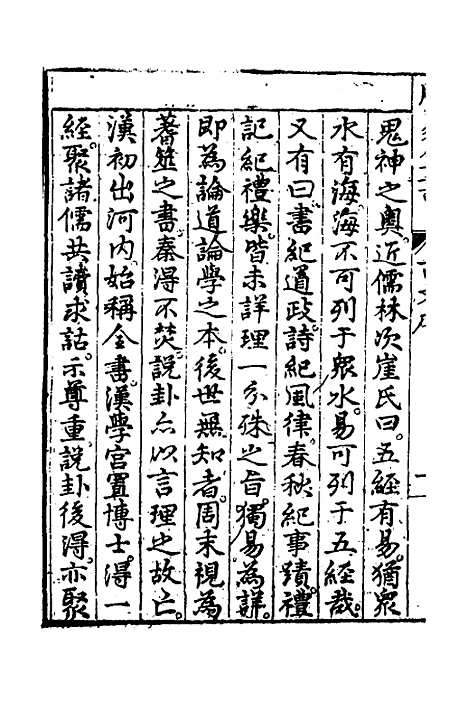 鬼神之奧。近儒林次崖氏曰。五經有易。猶眾
水有海。海不可列于眾水。易可列于五經哉。
又有曰。書紀道政。詩紀風律。春秋紀事蹟。禮
記紀禮樂。皆未詳理一分殊之旨。獨易為詳。
即為論道論學之本。後世無知者。周末視為
蓍筮之書。秦得不焚。說卦亦以言理之故亡。
漢初出河內。始稱全書。漢學官置博士。得一
經。聚諸儒共讀求詁。示尊重。說卦後得。亦聚